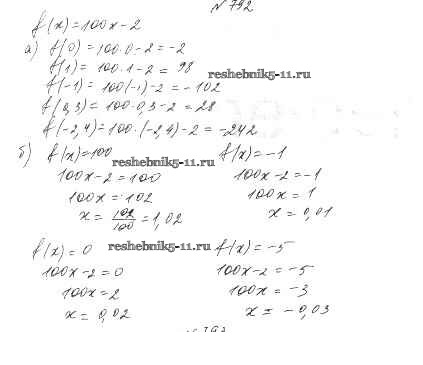 № 792
f(x)=100x-2
а) f(0)=100·0-2=-2
f(1)=100·1-2=98
reshebnik5-11.ru
f(-1)=100(-1)-2=-102
f(0,3)=100·0,3-2=28
f(-2,4)=100·(-2,4)-2=-242
б) f(x)=100
f(x)=-1
reshebnik5-11.ru
100x-2=100
100x-2=-1
100x=102
100x=1
x=102/100=1,02
x=0,01
f(x)=0
reshebnik5-11.ru
f(x)=-5
100x-2=0
100x-2=-5
100x=2
100x=-3
x=0,02
x=-0,03